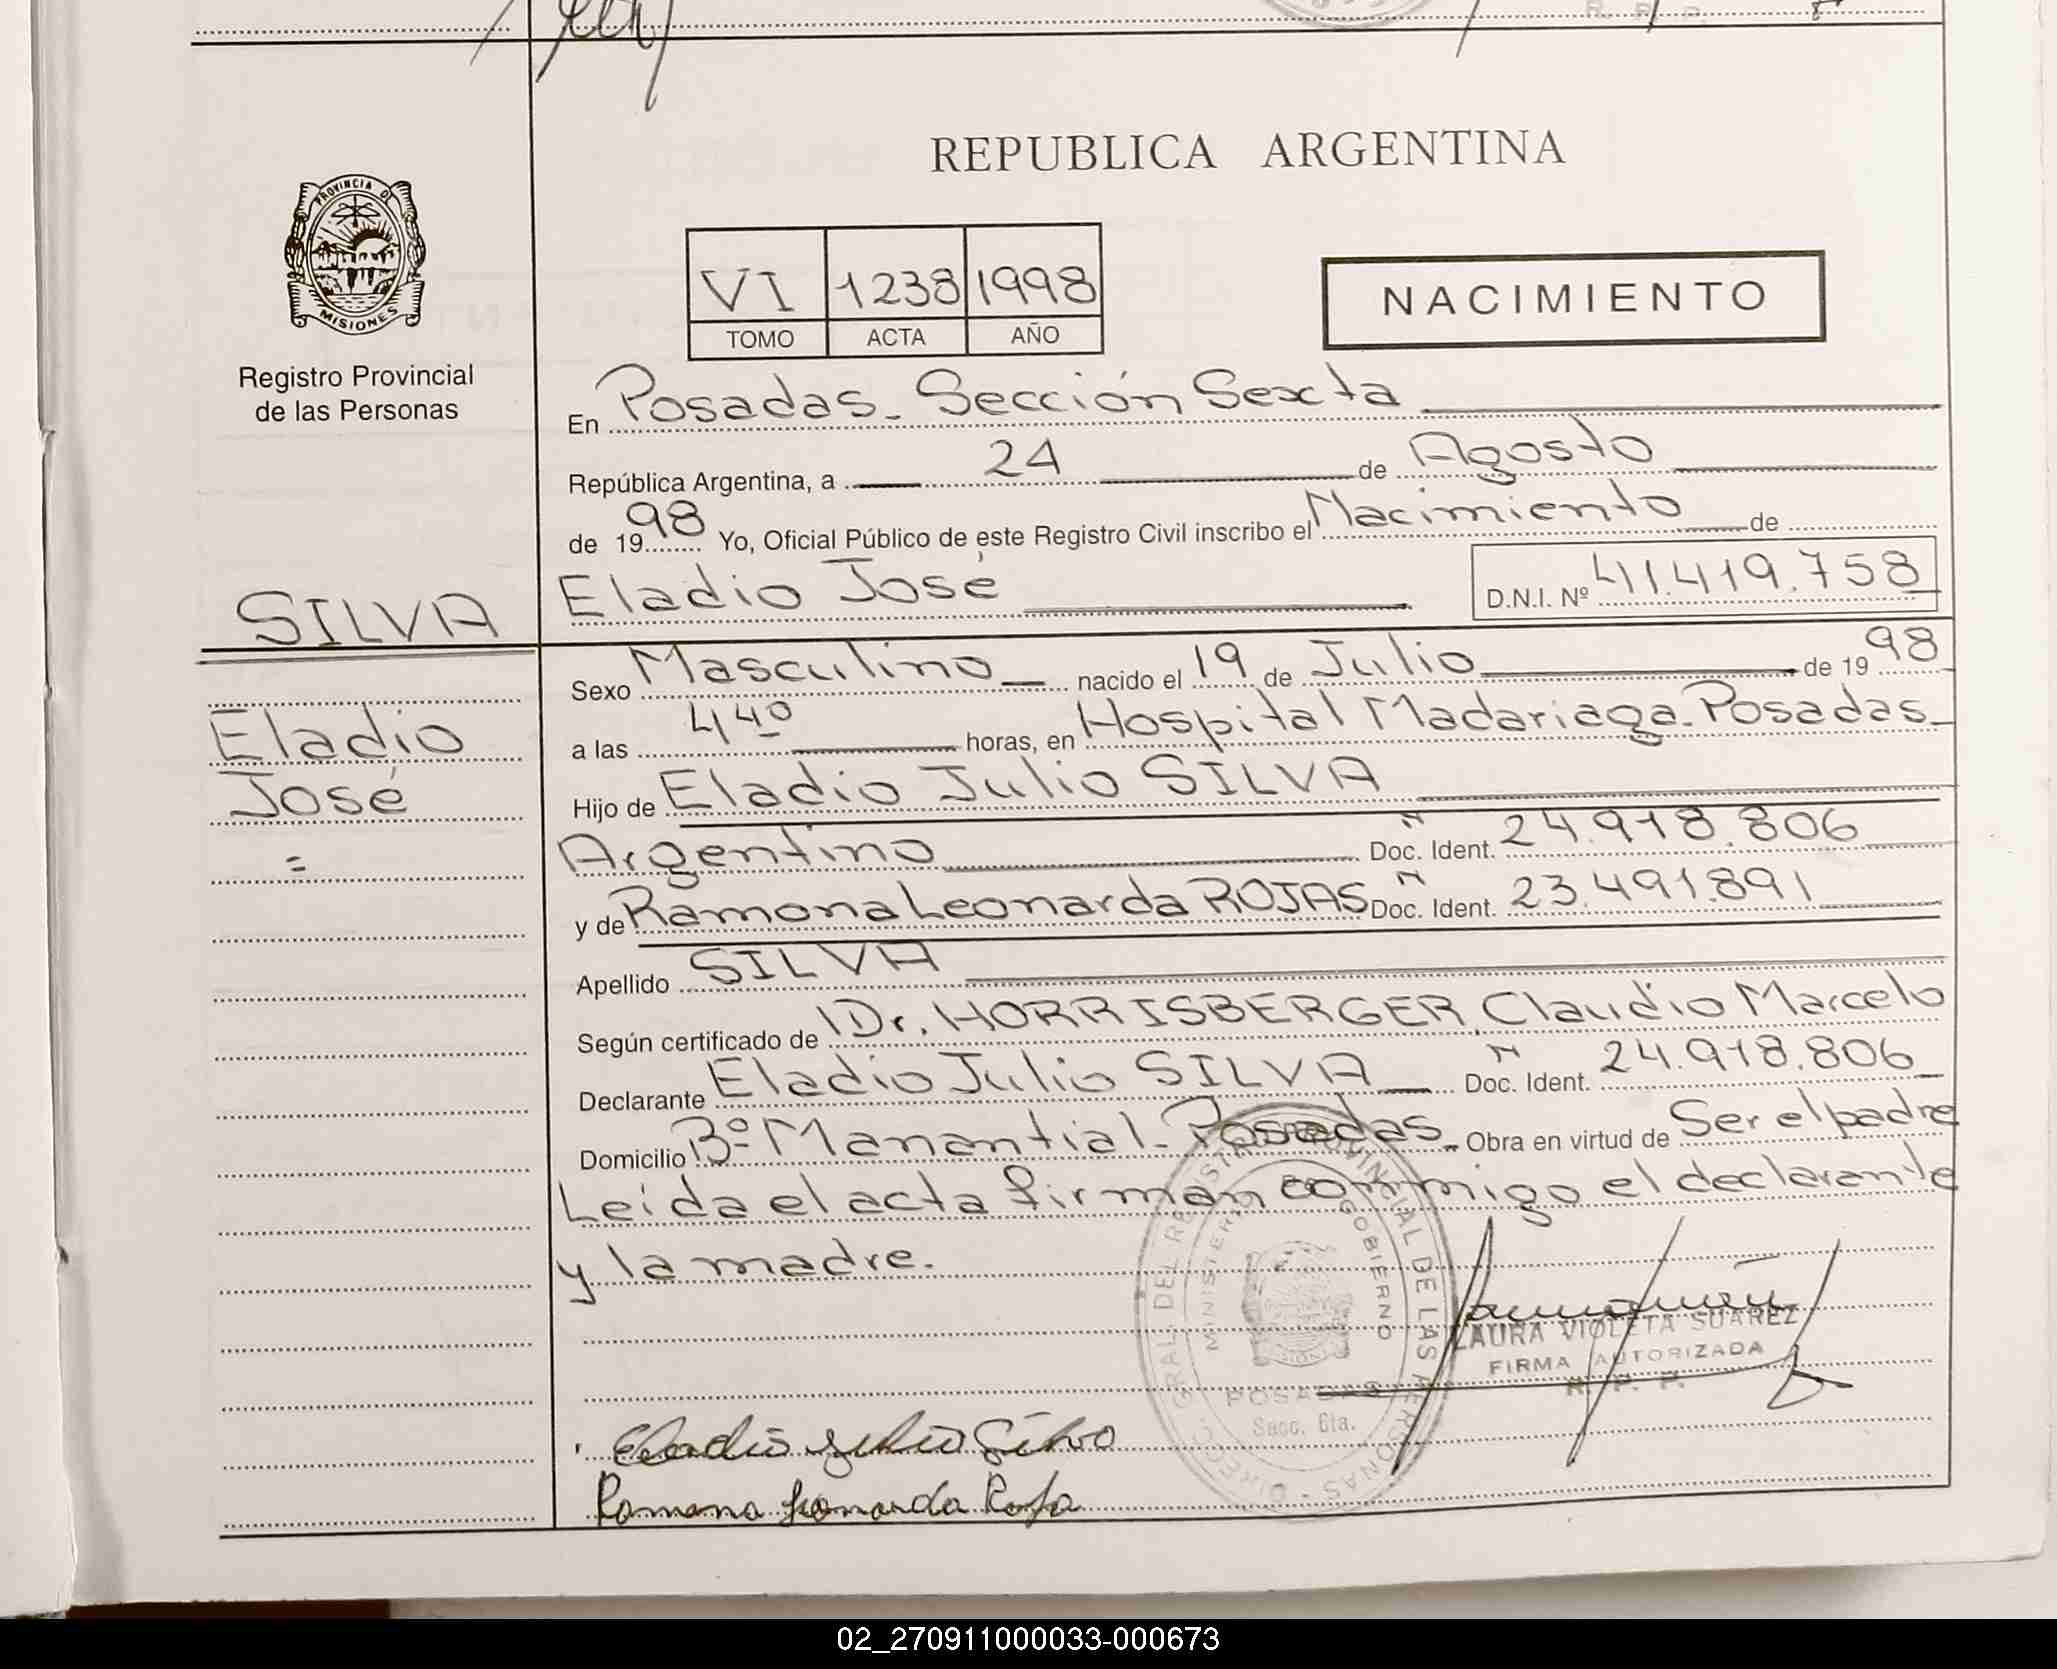 REPUBLICA ARGENTINA
PROVINCIA DE
MISIONES
Registro Provincial
de las Personas
VI 1238 1998
TOMO ACTA AÑO
NACIMIENTO
En Posadas - Sección Sexta
República Argentina, a 24 de Agosto
de 1998 Yo, Oficial Público de este Registro Civil inscribo el Nacimiento de
Eladio José D.N.I. Nº 41.419.758
SILVA
Eladio
José
=
Sexo Masculino nacido el 19 de Julio de 1998
a las 4 40 horas, en Hospital Madariaga - Posadas -
Hijo de Eladio Julio SILVA
Argentino Doc. Ident. N 24.918.806
y de Ramona Leonarda ROJAS Doc. Ident. N 23.491.891
Apellido SILVA
Según certificado de Dr. HORRISBERGER, Claudio Marcelo
Declarante Eladio Julio SILVA Doc. Ident. N 24.918.806
Domicilio Bº Manantial - Posadas - Obra en virtud de Ser el padre
Leída el acta firman conmigo el declarante
y la madre.
DIREC. GRAL. DEL REGISTRO PROVINCIAL DE LAS PERSONAS
MINISTERIO DE GOBIERNO
POSADAS
Secc. 6ta.
LAURA VIOLETA SUAREZ
FIRMA AUTORIZADA
R. P. P.
Eladio Julio Silva
Ramona Leonarda Roja
02_270911000033-000673